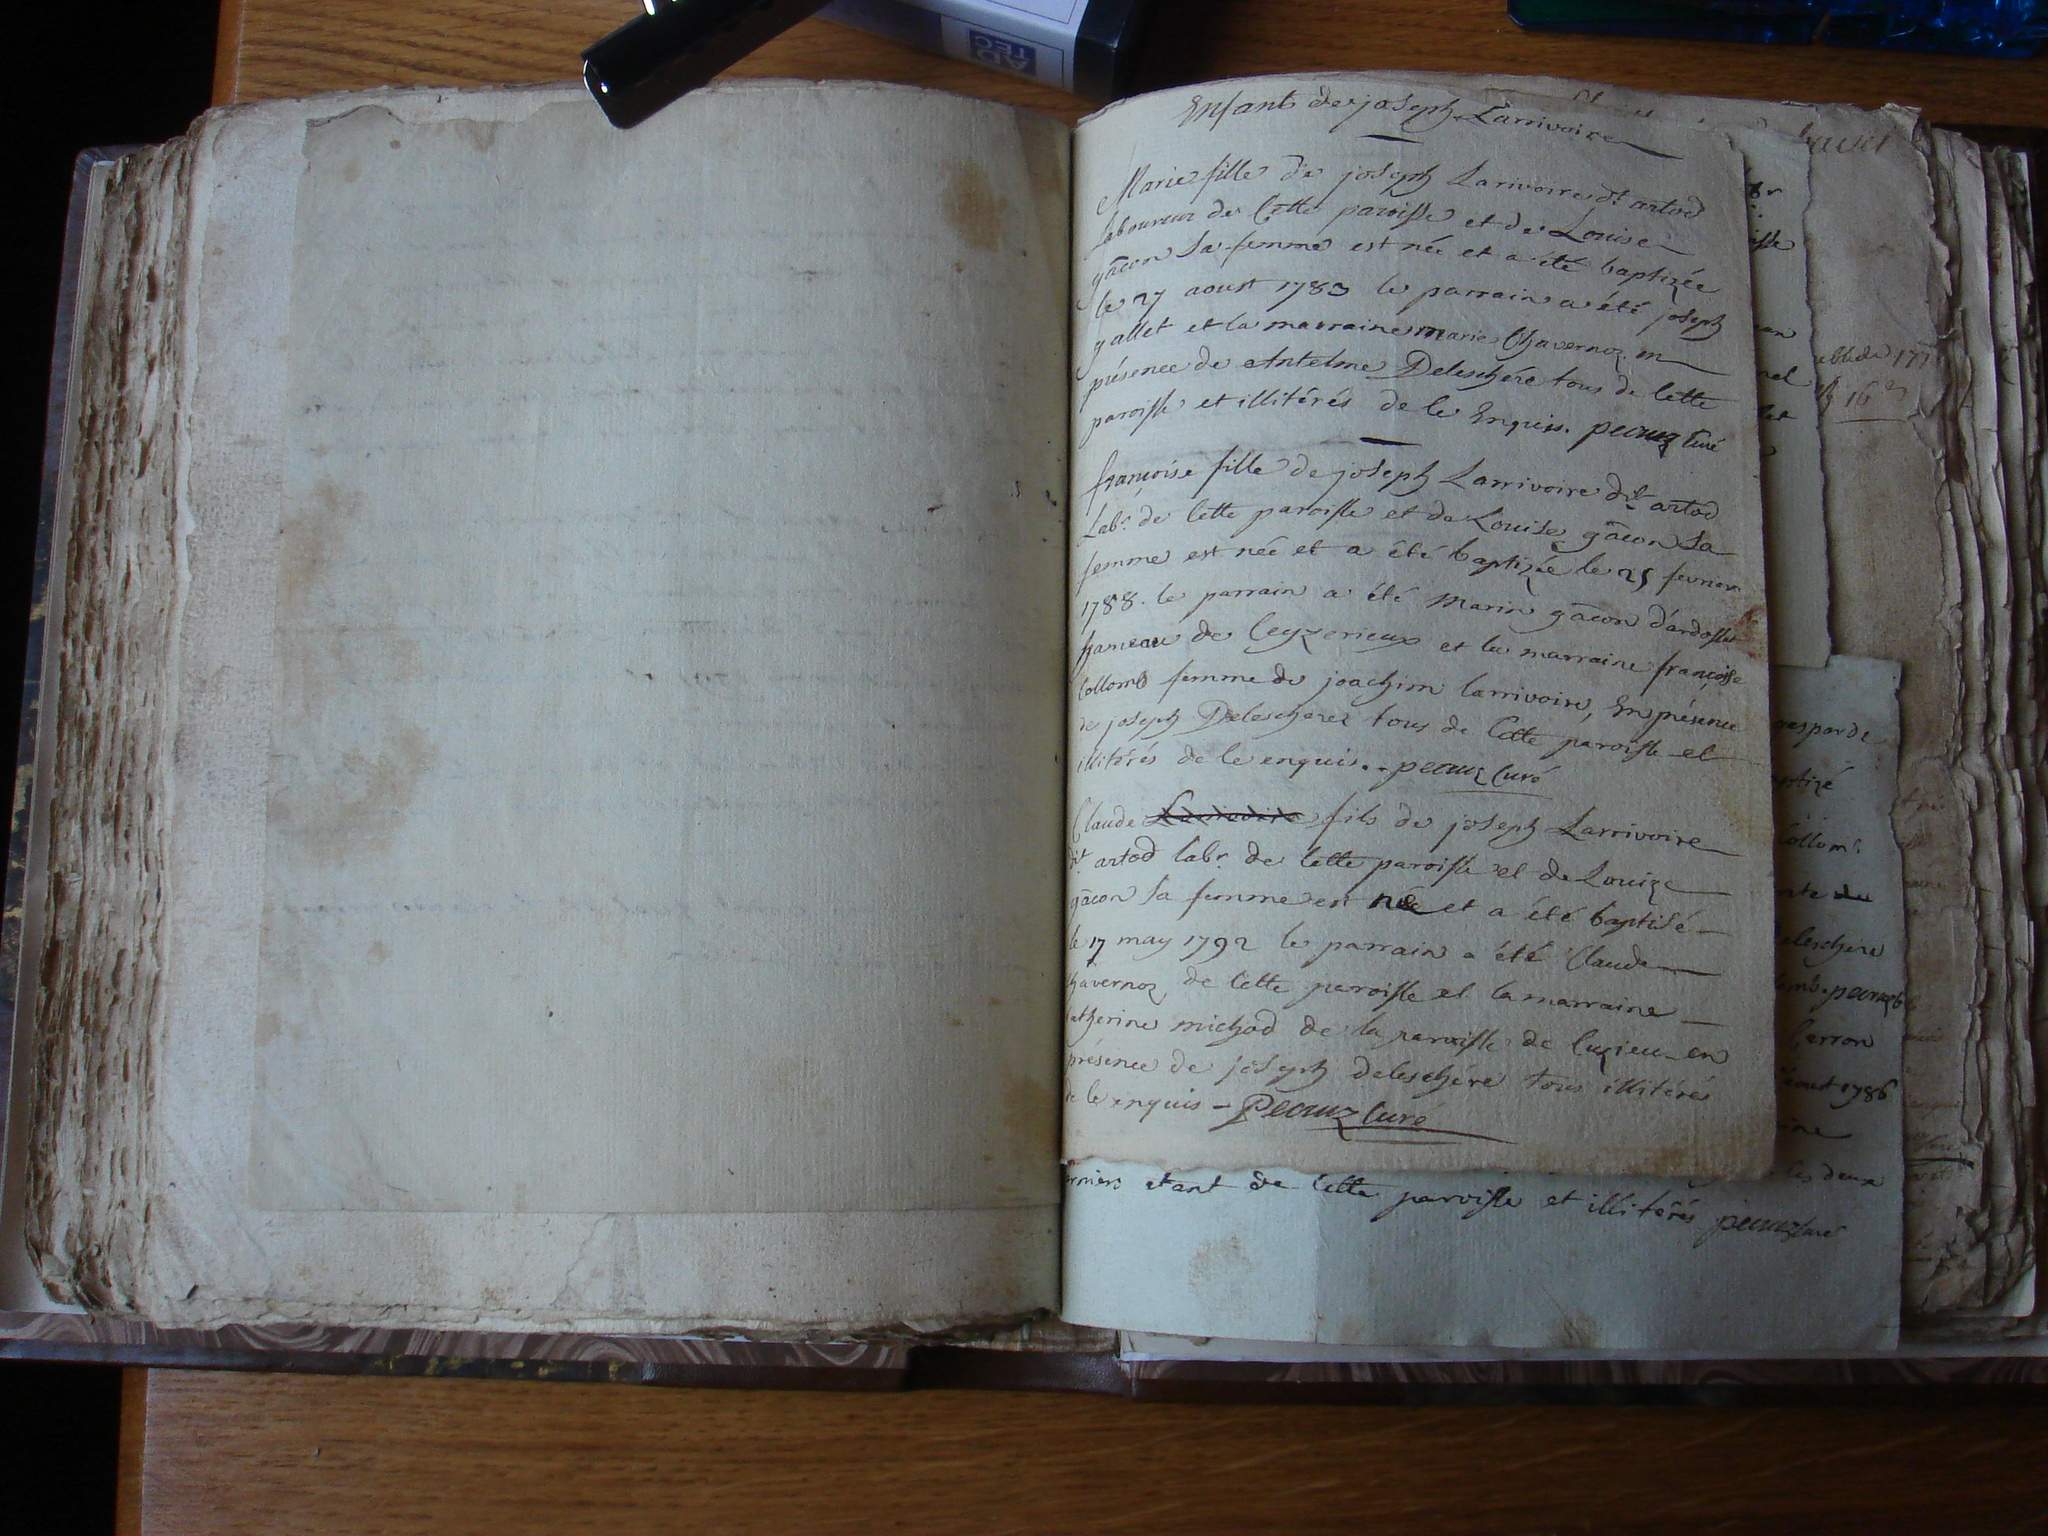 AD
TEC
Enfants de joseph Larrivoire
Marie fille de joseph Larivoire dt artod
Laboureur de Cette paroisse et de Louise
gâcon sa femme est née et a été baptizée
le 27 aoust 1783 le parrain a été joseph
gallet et la marraine marie Chavernoz en
présence de Antelme Deleschére tous de Cette
paroisse et illitérés de ce Enquis. pecauz Curé
françoise fille de joseph Larrivoire dit artod
Labr. de Cette paroisse et de Louise gâcon sa
femme est née et a été baptizée le 25 fevrier
1788. le parrain a été Marin gâcon d'ardosset
hameau de Ceyzerieux et la marraine françoise
Collomb femme de joachim Larrivoire, En présence
de joseph Delescherez tous de Cette paroisse et
illitérés de ce enquis.. pecauz Curé
Claude fils de joseph Larrivoire
dit artod labr. de Cette paroisse et de Louize
gâcon sa femme est né et a été baptisé
le 17 may 1792 le parrain a été Claude
havernoz de Cette paroisse et la marraine
atherine michod de la paroisse de Cuzieu en
présence de joseph deleschére tous illitérés
de ce enquis - Pecauz Curé
rniers etant de Cette paroisse et illitérés pecauz Curé
isse
nel
let
16
respond
ptizé
Collomb
nte du
eleschere
omb. pecauz
ferron
aout 1786
ine
les deux